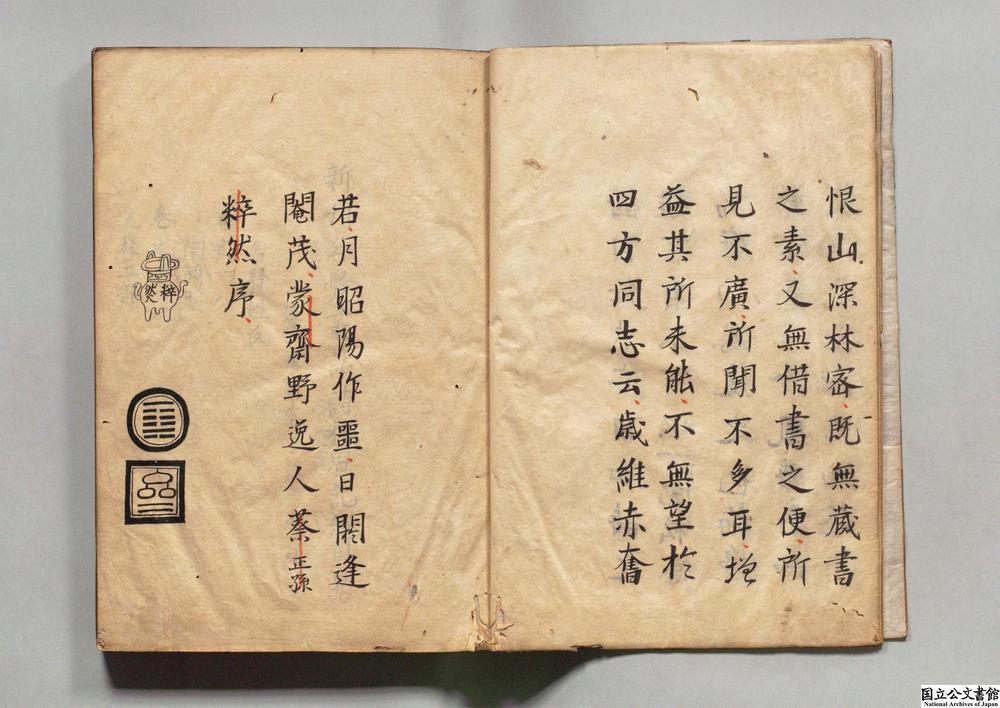 恨山深林宻既無蔵書
之素又無借書之便所
見不廣所聞不多耳増
益其所未能不無望於
四方同志云歳維赤奮
若月昭陽作噩日閼逢
閹茂蒙齋野逸人蔡正孫
粹然序
粹然
国立公文書館
National Archives of Japan